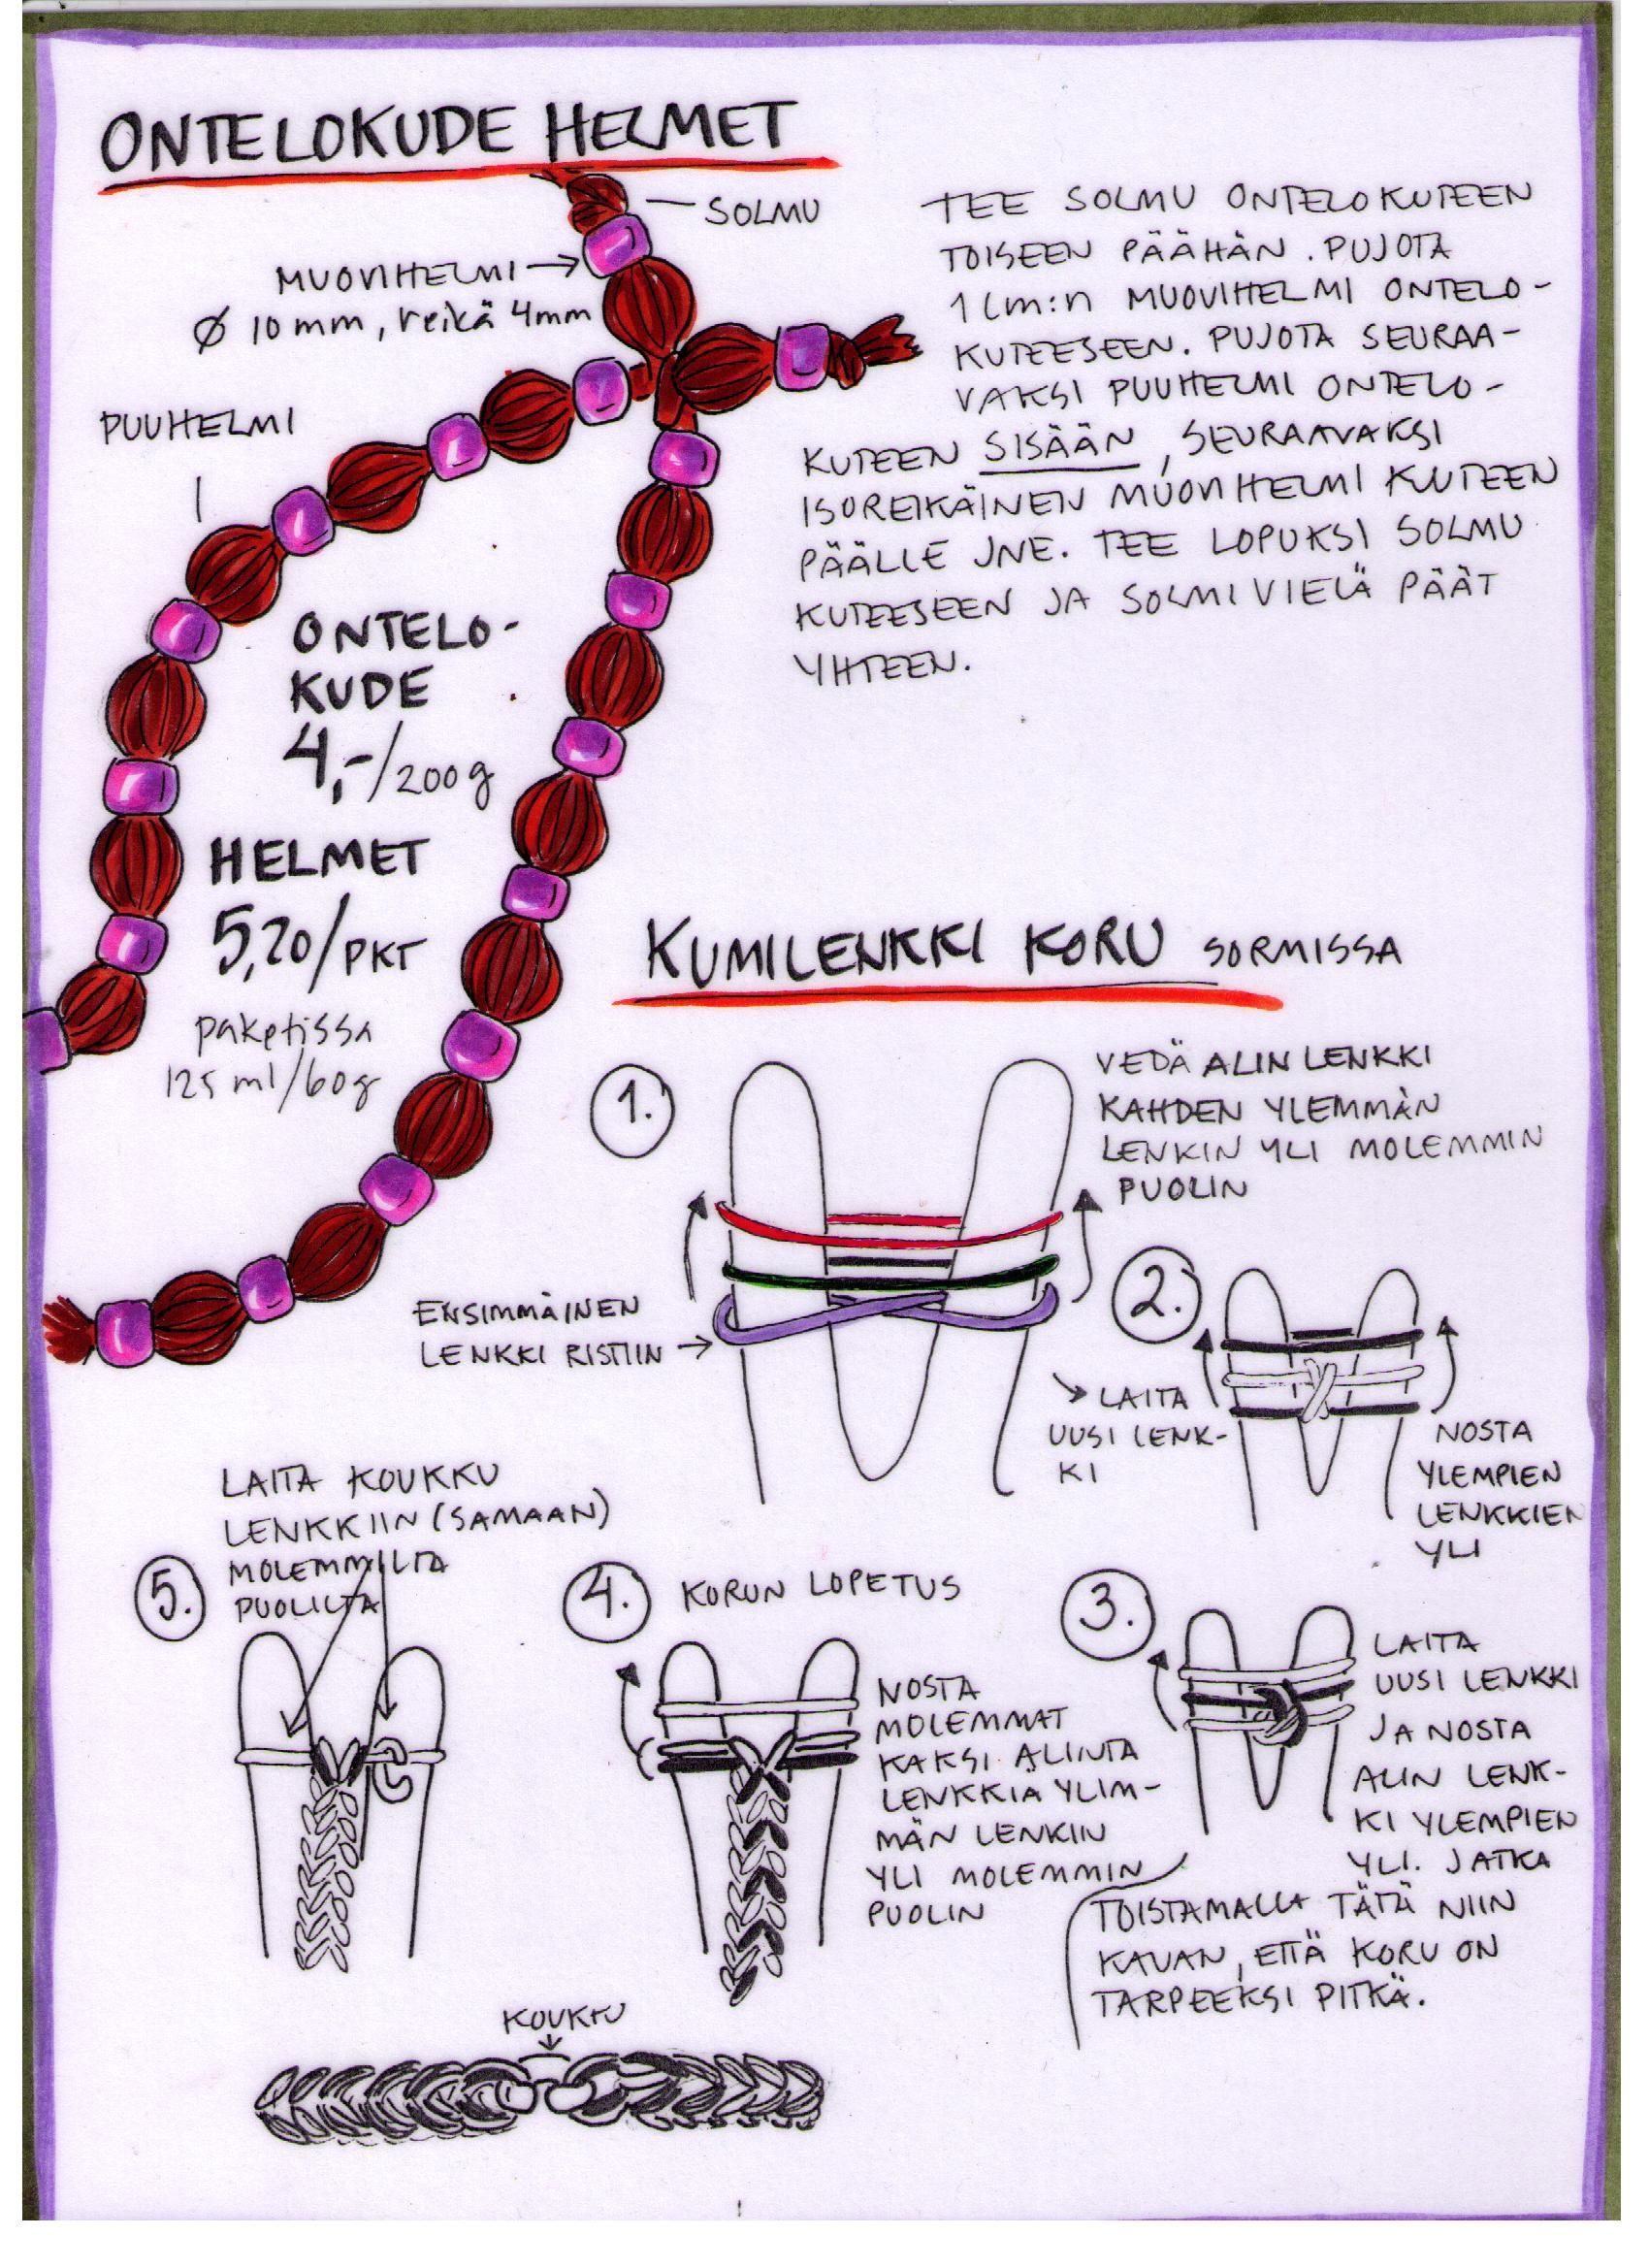 ONTELOKUDE HELMET
SOLMU
MUOVIHELMI
Ø 10 mm, reikä 4mm
PUUHELMI
TEE SOLMU ONTELOKUTEEN
TOISEEN PÄÄHÄN. PUJOTA
1 cm:n MUOVIHELMI ONTELO-
KUTEESEEN. PUJOTA SEURAA-
VAKSI PUUHELMI ONTELO-
KUTEEN SISÄÄN, SEURAAVAKSI
ISOREIKÄINEN MUOVIHELMI KUTEEN
PÄÄLLE JNE. TEE LOPUKSI SOLMU
KUTEESEEN JA SOLMI VIELÄ PÄÄT
YHTEEN.
ONTELO-
KUDE
4,-/200g
HELMET
5,20/PKT
paketissa
125 ml/60g
KUMILENKKI KORU SORMISSA
1.
VEDÄ ALIN LENKKI
KAHDEN YLEMMÄN
LENKIN YLI MOLEMMIN
PUOLIN
ENSIMMÄINEN
LENKKI RISTIIN
2.
LAITA
UUSI LENK-
KI
NOSTA
YLEMPIEN
LENKKIEN
YLI
3.
LAITA
UUSI LENKKI
JA NOSTA
ALIN LENK-
KI YLEMPIEN
YLI. JATKA
TOISTAMALLA TÄTÄ NIIN
KAUAN, ETTÄ KORU ON
TARPEEKSI PITKÄ.
4.
KORUN LOPETUS
NOSTA
MOLEMMAT
KAKSI ALINTA
LENKKIÄ YLIM-
MÄN LENKIN
YLI MOLEMMIN
PUOLIN
5.
LAITA KOUKKU
LENKKIIN (SAMAAN)
MOLEMMILTA
PUOLILTA
KOUKKU